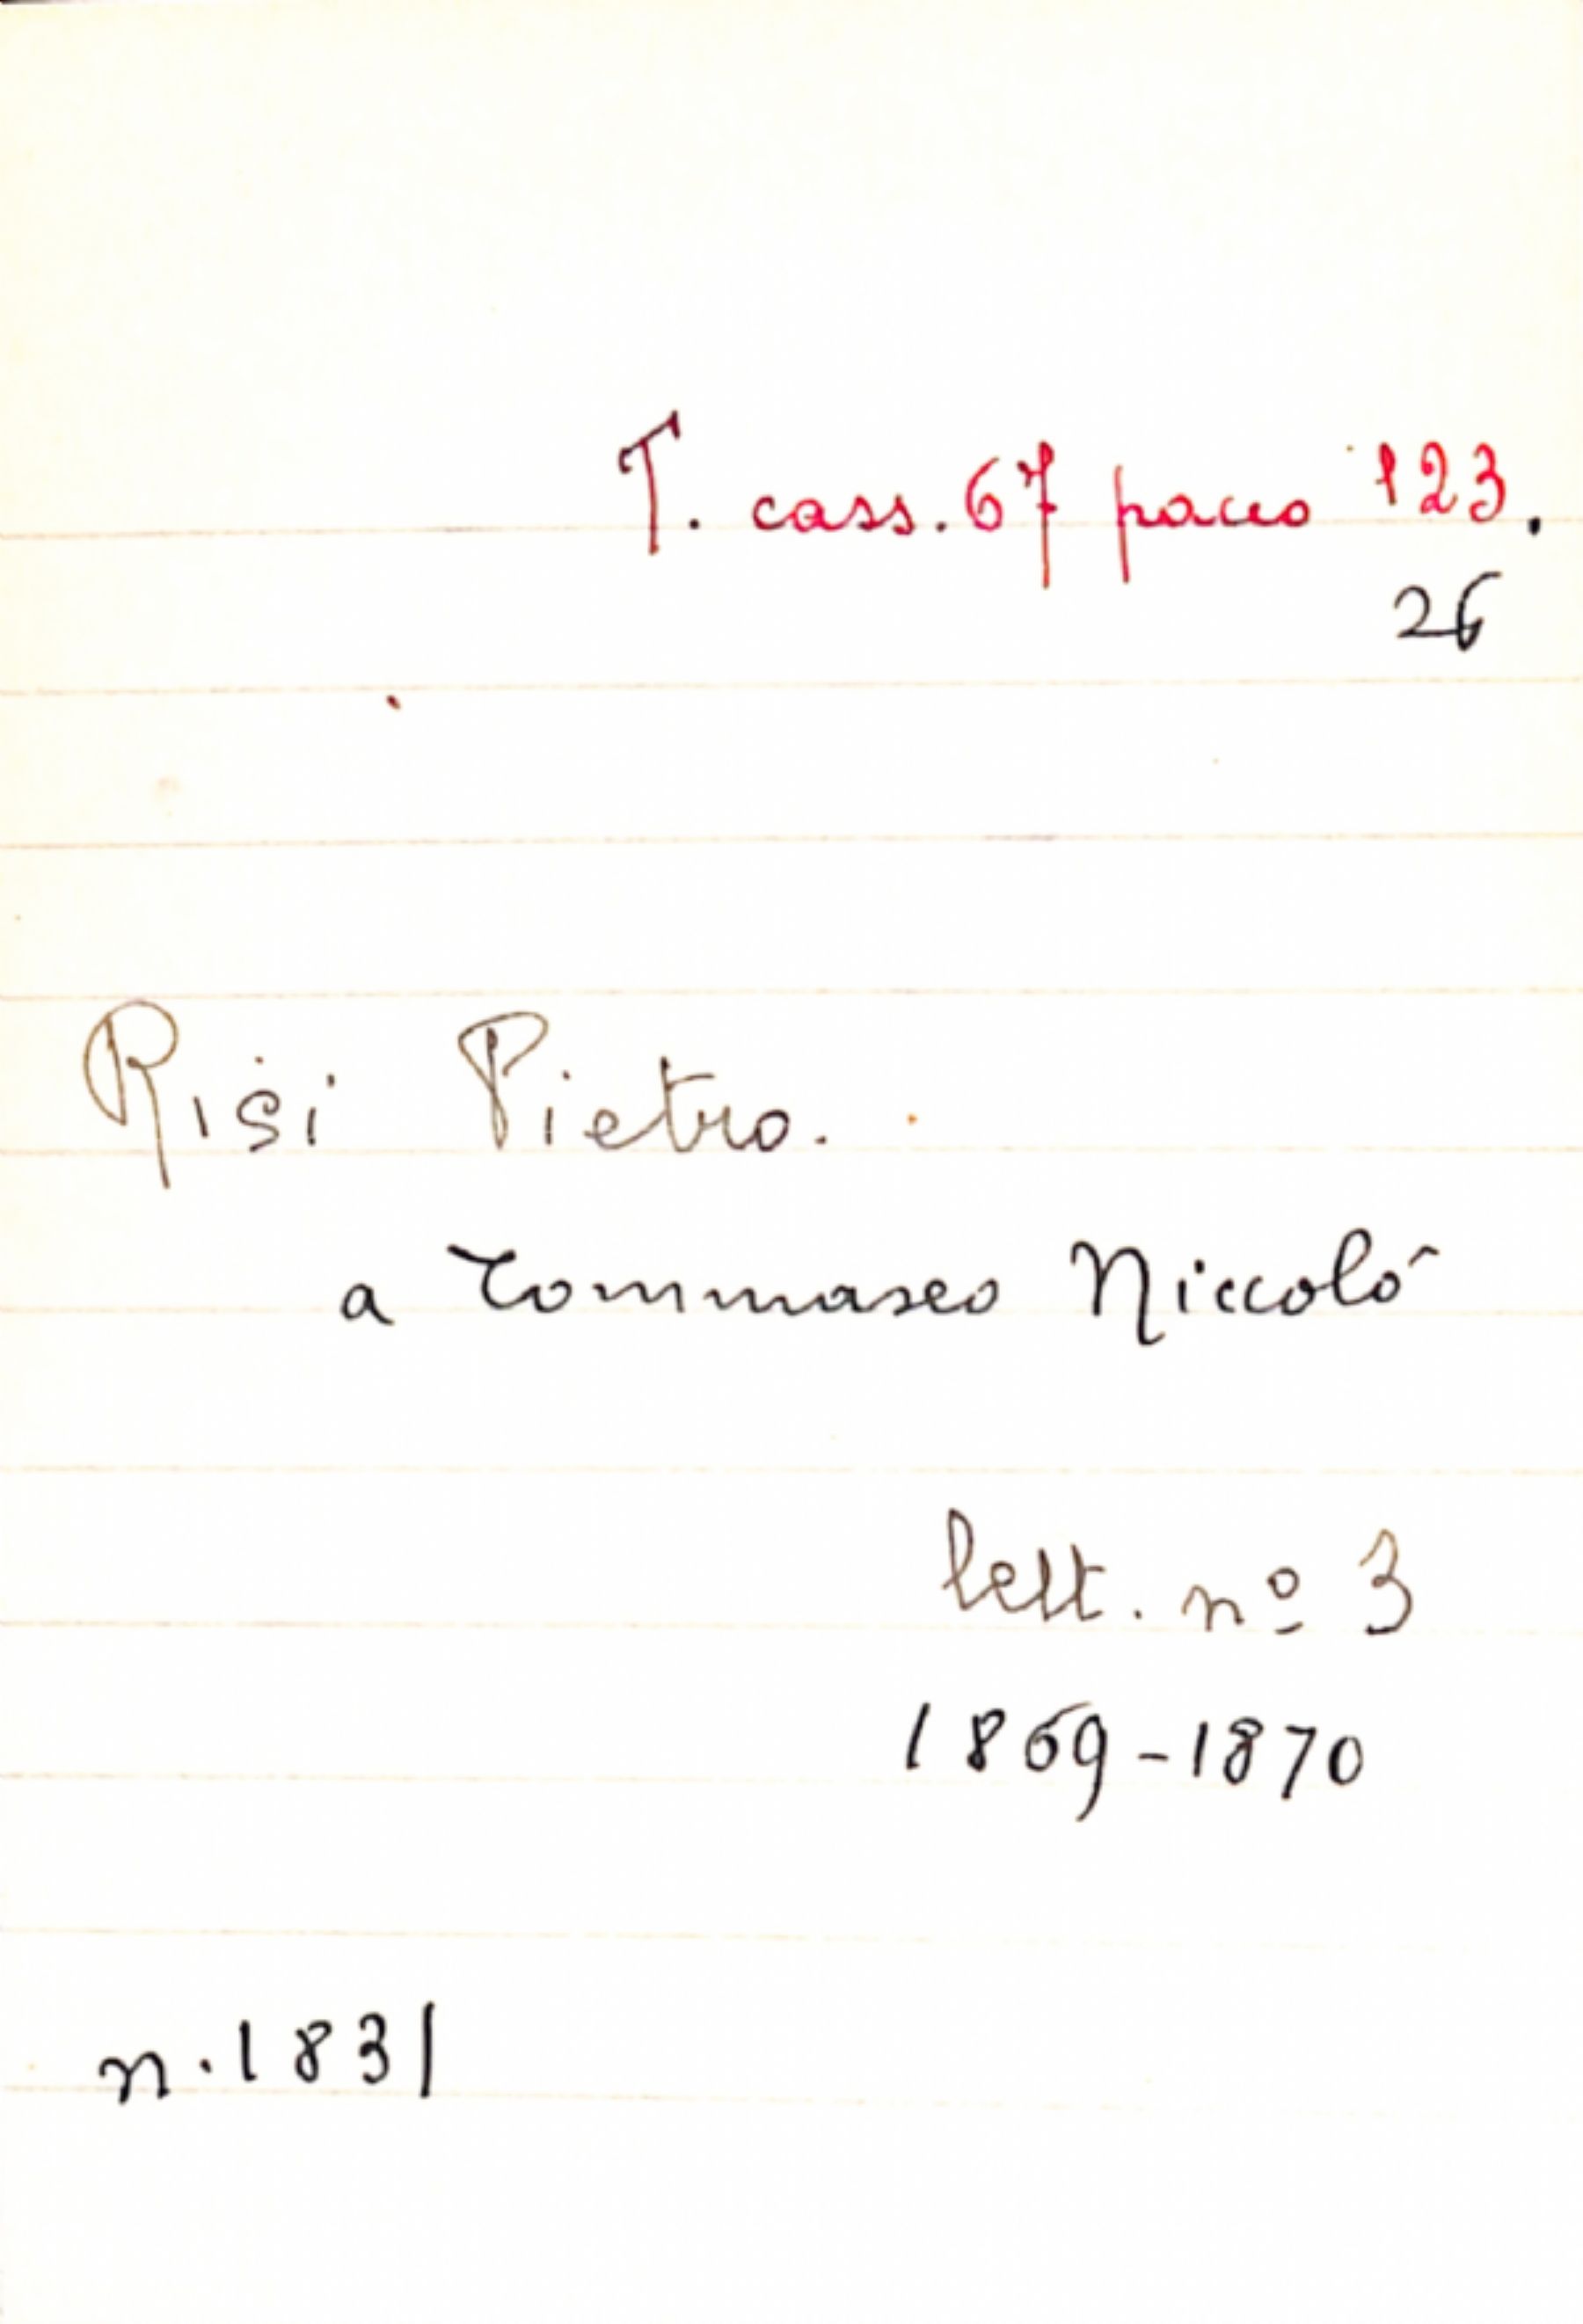 T. cass. 67 pacco 123.
26
Risi Pietro.
a Tommaseo Niccolò
lett. nº 3
1869-1870
n. 1831